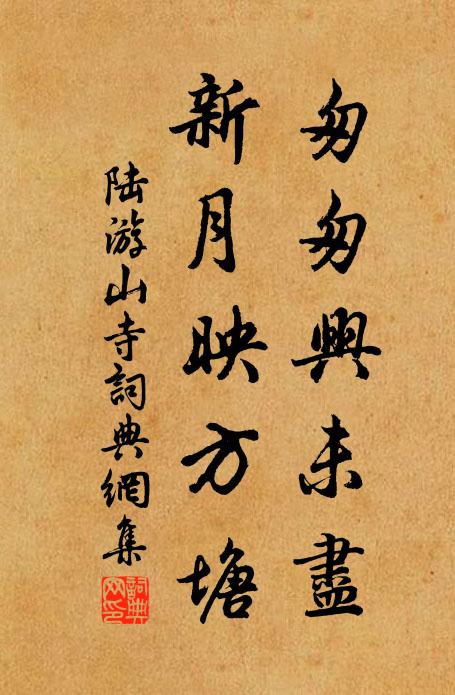 匆匆興未盡
新月映方塘
陆游山寺詞典網集
詞典網印